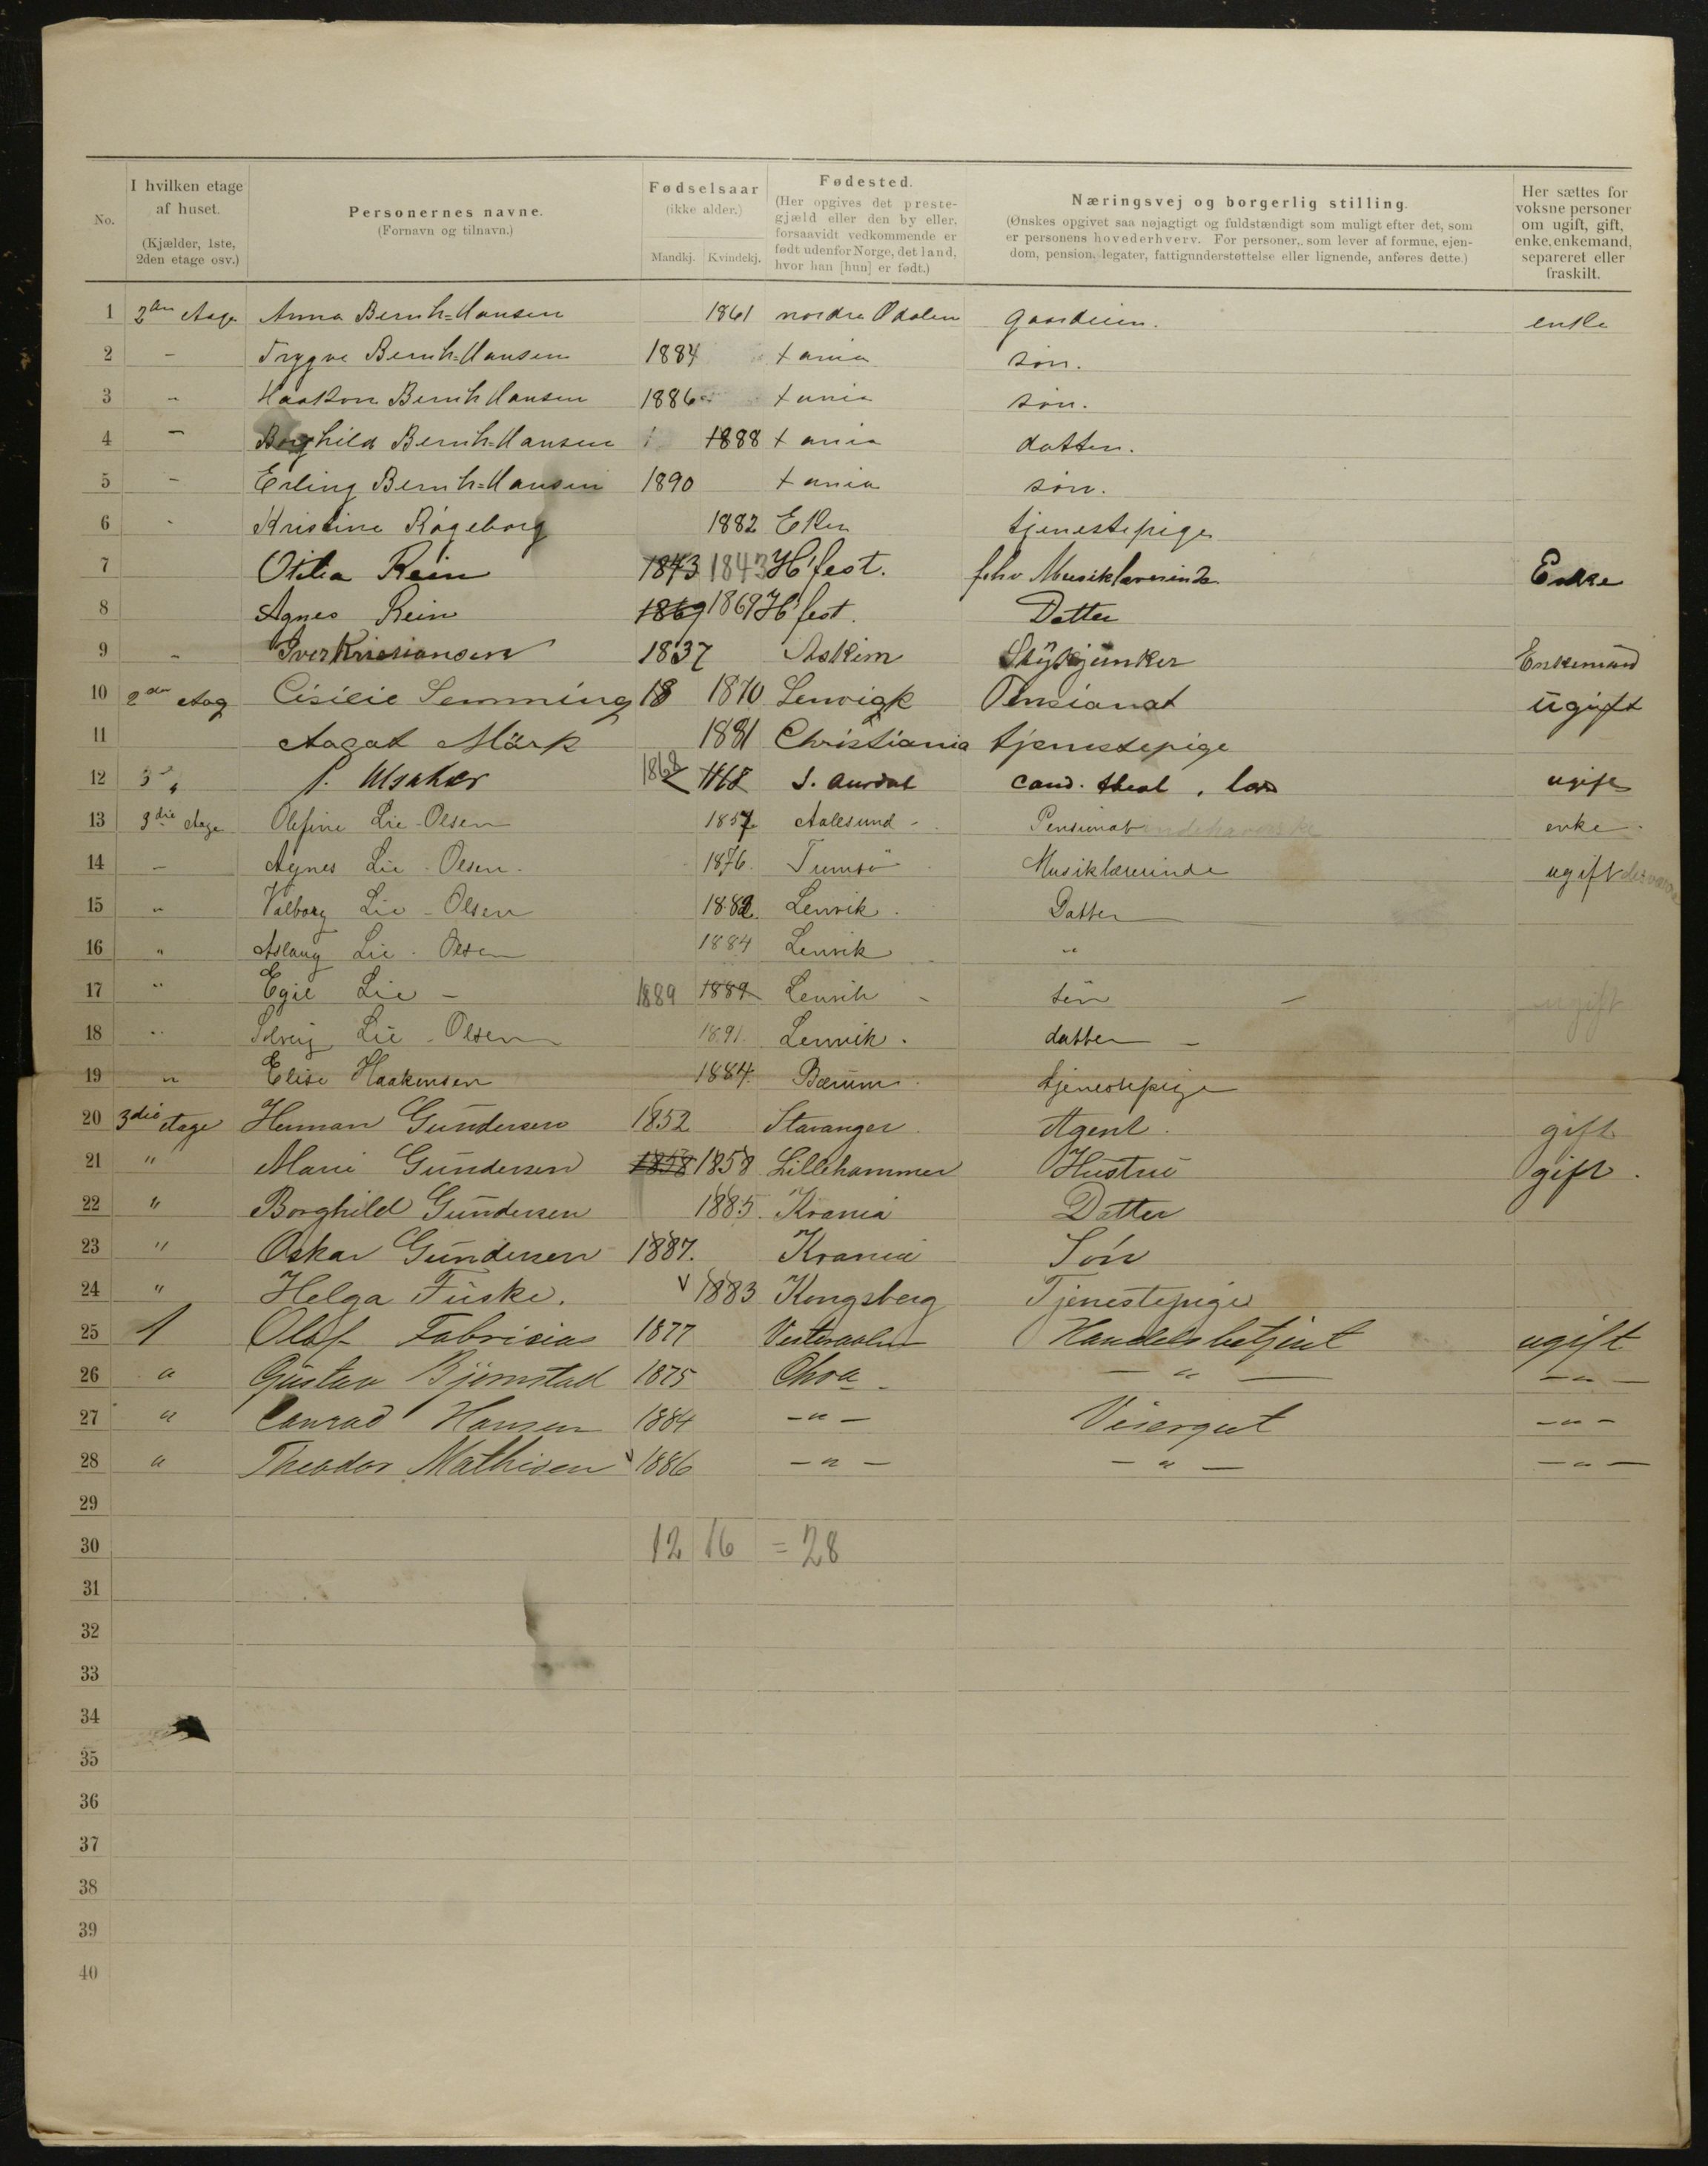 No.
I hvilken etage af huset. (Kjælder, 1ste, 2den etage osv.)
Personernes navne. (Fornavn og tilnavn.)
Fødselsaar (ikke alder.) Mandkj. Kvindekj.
Fødested. (Her opgives det prestegjæld eller den by eller, forsaavidt vedkommende er født udenfor Norge, det land, hvor han [hun] er født.)
Næringsvej og borgerlig stilling. (Ønskes opgivet saa nøjagtigt og fuldstændigt som muligt efter det, som er personens hovederhverv. For personer, som lever af formue, ejendom, pension, legater, fattigunderstøttelse eller lignende, anføres dette.)
Her sættes for voksne personer om ugift, gift, enke, enkemand, separeret eller fraskilt.
1 2den Aage Anna Bernh=Hansen 1861 nordre Odalen enke
2 – Trygve Bernh=Hansen 1884 xania søn.
3 – Haakon Bernh Hansen 1886 xania søn.
4 – Borghild Bernh=Hansen 1888 xania datter.
5 – Erling Bernh=Hansen 1890 xania søn.
6 – Kristine Rögeborg 1882 Eker tjenestepige
7 Otilia Rein 1843 1843 H'fest. fhv Musiklærerinde Enke
8 Agnes Rein 1869 1869 H'fest. Datter
9 „ Iver Kristiansen 1837 Askim Stykjunker Enkemand
10 2den Aag Cisilie Semming 18 1870 Lenvigk Pensionat ugift
11 Aagot Mörk 1881 Christiania tjenestepige
12 3 „ 1868 1868 S. Aurdal cand. theol. ugift
13 3die Aage Olefine Lie-Olsen 1857 Aalesund - Pensionat indehaverske enke.
14 – Agnes Lie-Olsen. 1876. Tromsö Musiklærerinde ugift
15 „ Valborg Lie-Olsen 1882. Lenvik. Datter
16 „ Aslaug Lie-Olsen 1884 Lenvik „
17 „ Egil Lie – 1889 1889 Lenvik - søn – ugift
18 „ Solveig Lie-Olsen 1891. Lenvik. datter –
19 „ Elise Haakensen 1884. Bærum. tjenestepige
20 3die etage Herman Gundersen 1852 Stavanger Agent. gift
21 " Marie Gundersen 1858 1858 Lillehammer Hustru gift.
22 " Borghild Gundersen 1885. Krania Datter
23 " Oskar Gundersen 1887. Krania Søn
24 " Helga Fuske. 1883 Kongsberg Tjenestepige
25 1 Olaf Fabricius 1877 Vesteraalen Handelsbetjent ugift
26 " Gustav Bjørnstad 1875 Chra – – " – – " –
27 " Conrad Hansen 1884 – " – Visergut – " –
28 " Theodor Mathisen 1886 – " – – " – – " –
29
30 12 16 = 28
31
32
33
34
35
36
37
38
39
40